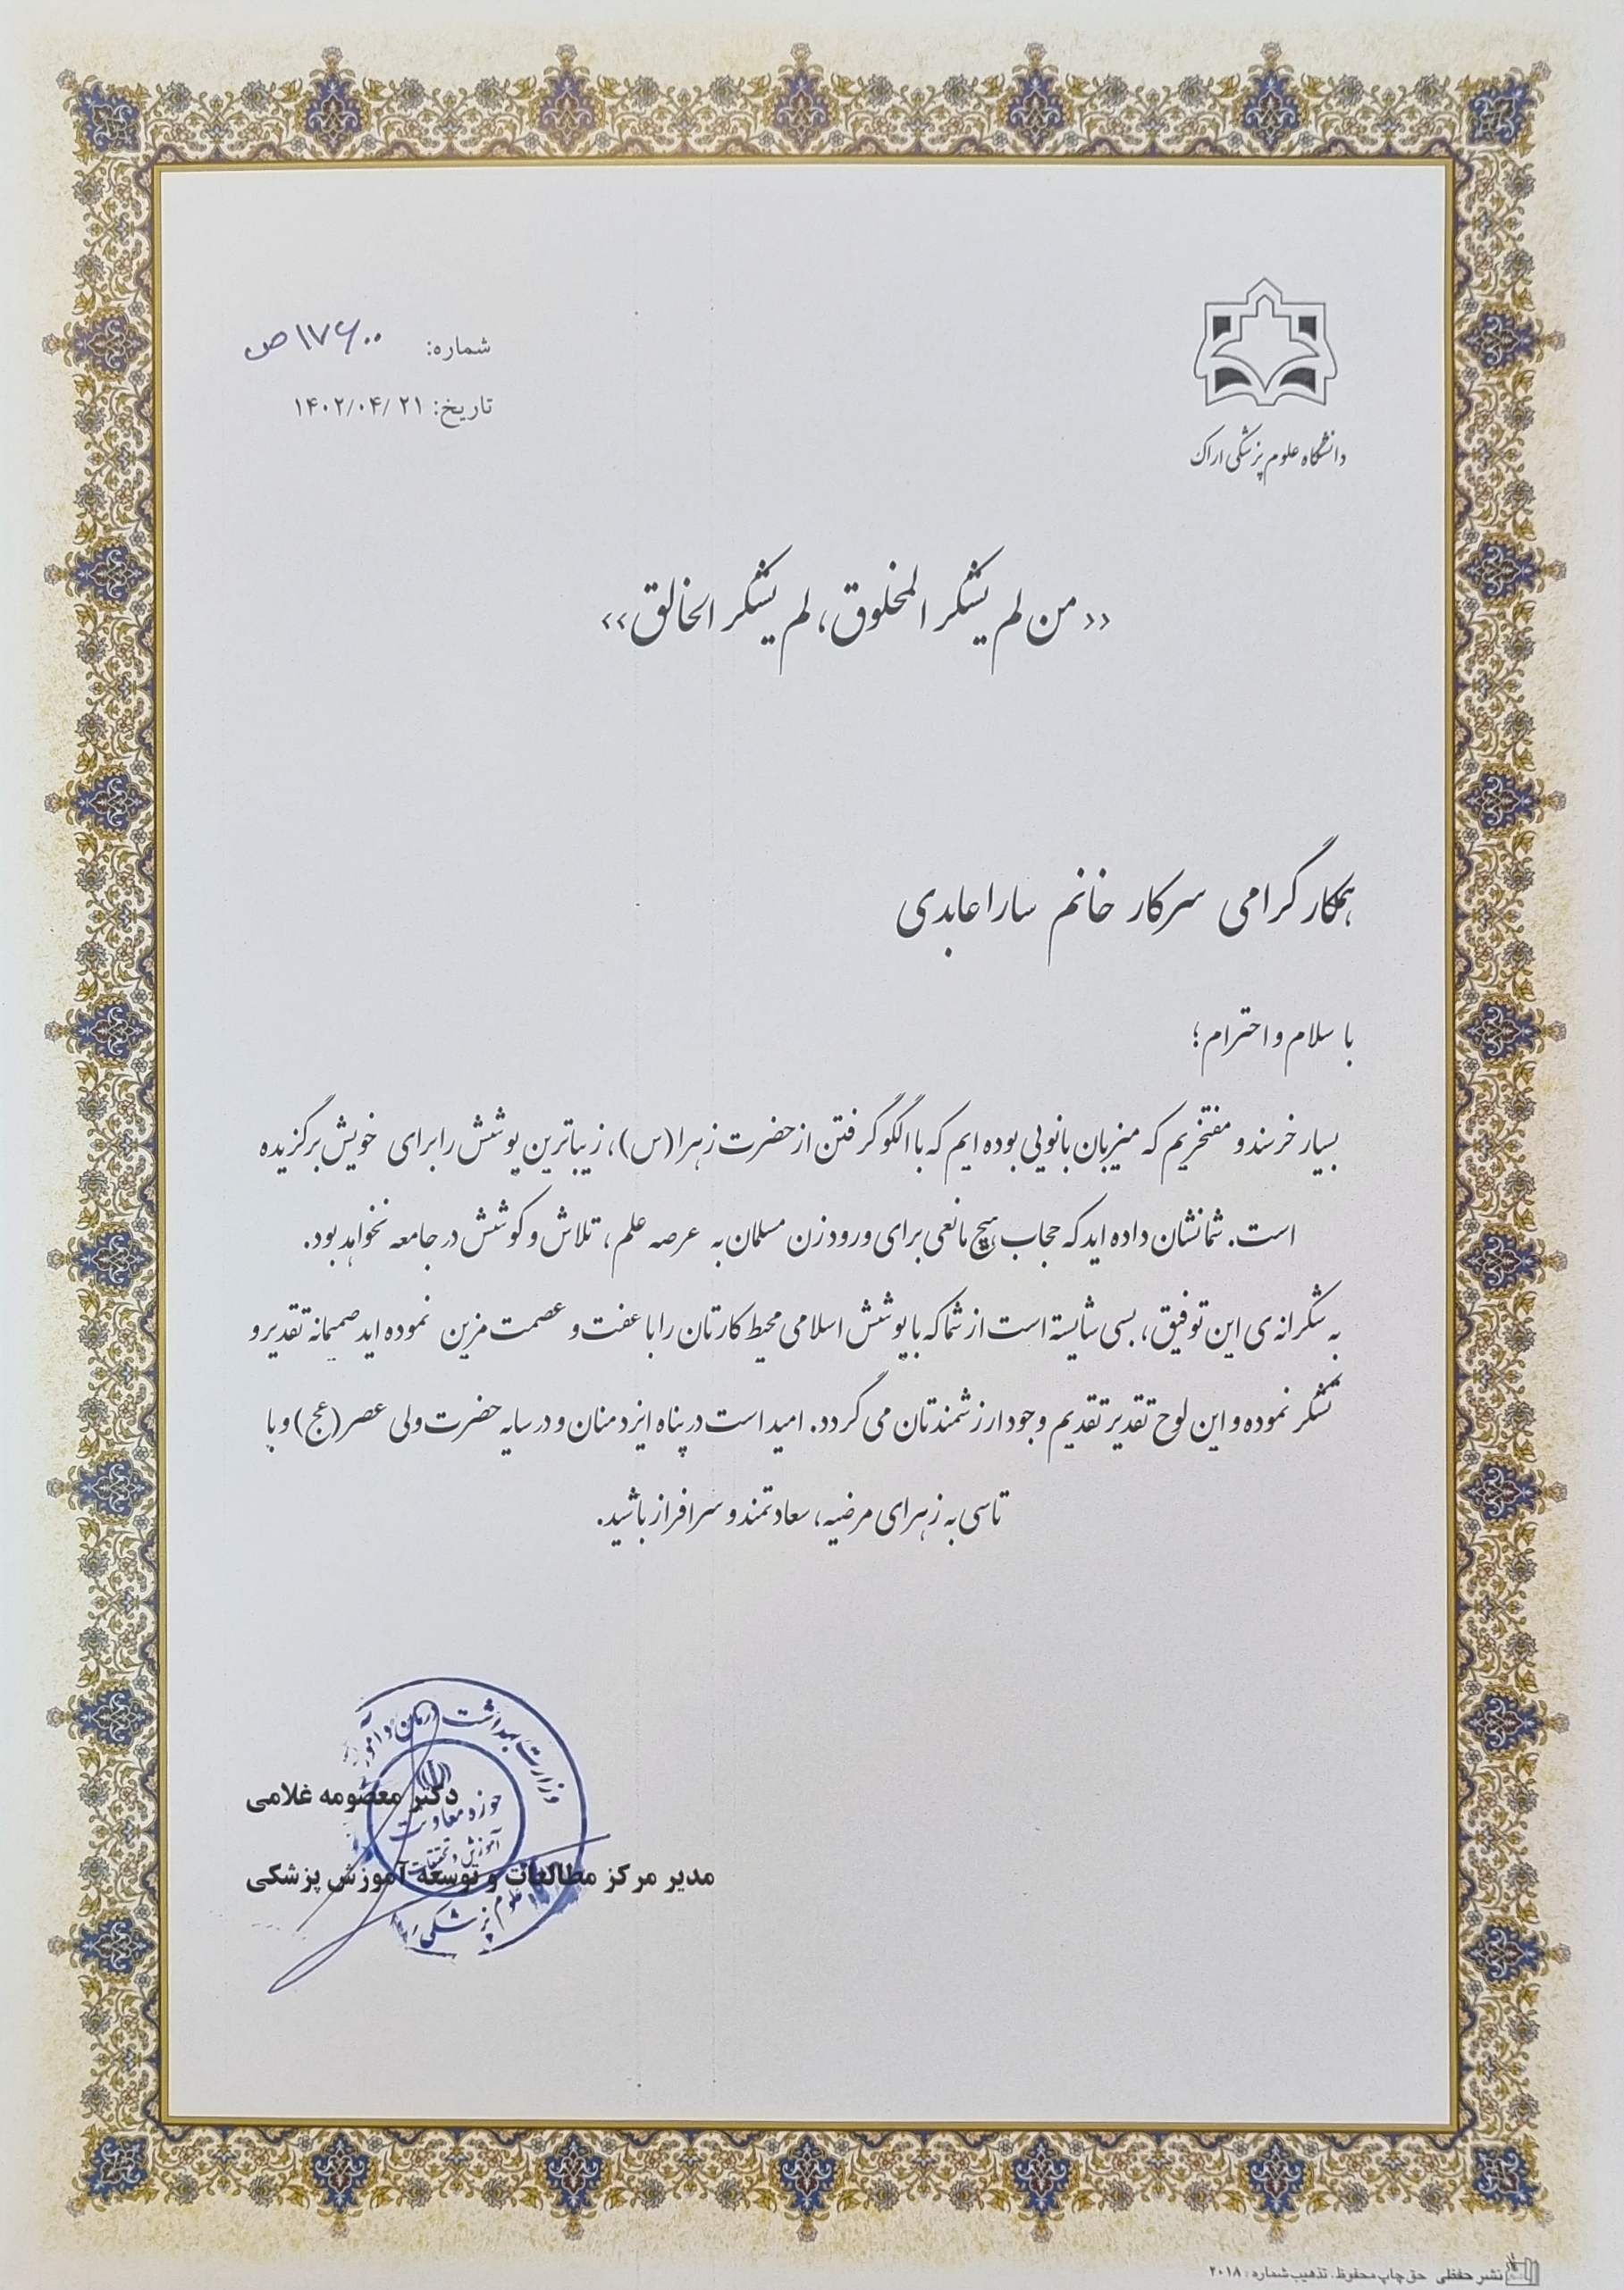 شماره: ۱۷۶۰۰ص
تاریخ: ۱۴۰۲/۰۴/۲۱
دانشگاه علوم پزشکی اراک
«من لم یشکر المخلوق، لم یشکر الخالق»
همکار گرامی سرکار خانم سارا عابدی
با سلام و احترام؛
بسیار خرسند و مفتخریم که میزبان بانویی بوده ایم که با الگو گرفتن از حضرت زهرا (س)، زیباترین پوشش را برای خویش برگزیده
است. شما نشان داده اید که حجاب هیچ مانعی برای ورود زن مسلمان به عرصه علم، تلاش و کوشش در جامعه نخواهد بود.
به شکرانه ی این توفیق، بسی شایسته است از شما که با پوشش اسلامی محیط کارتان را با عفت و عصمت مزین نموده اید صمیمانه تقدیر و
تشکر نموده و این لوح تقدیر تقدیم وجود ارزشمندتان می گردد. امید است در پناه ایزد منان و در سایه حضرت ولی عصر (عج) و با
تاسی به زهرای مرضیه، سعادتمند و سرافراز باشید.
وزارت بهداشت درمان و
حوزه معاونت
آموزش و تحقیقات
علوم پزشکی
دکتر معصومه غلامی
مدیر مرکز مطالعات و توسعه آموزش پزشکی
نشر حفظی حق چاپ محفوظ. تذهیب شماره: ۲۰۱۸